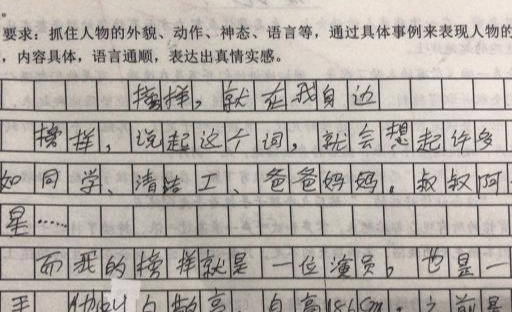 要求：抓住人物的外貌、动作、神态、语言等，通过具体事例来表现人物的
，内容具体，语言通顺，表达出真情实感。
榜样，就在我身边
榜样，说起这个词，就会想起许多
如同学、清洁工、爸爸妈妈。叔叔阿
星……
而我的榜样就是一位演员，也是一
手 他叫 自高186cm。之前是